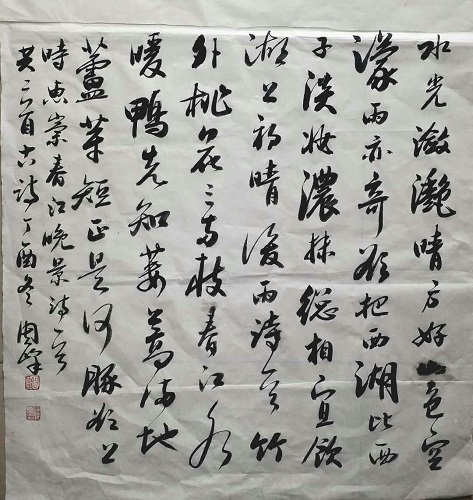 水光瀲灧晴方好山色空
濛雨亦奇欲把西湖比西
子淡妆濃抹総相宜飲
湖上初晴後雨诗一首竹
外桃花三两枝春江水
暖鴨先知蔞蒿满地
蘆芽短正是河豚欲上
時惠崇春江晚景诗一首
二首古诗丁酉冬周峰